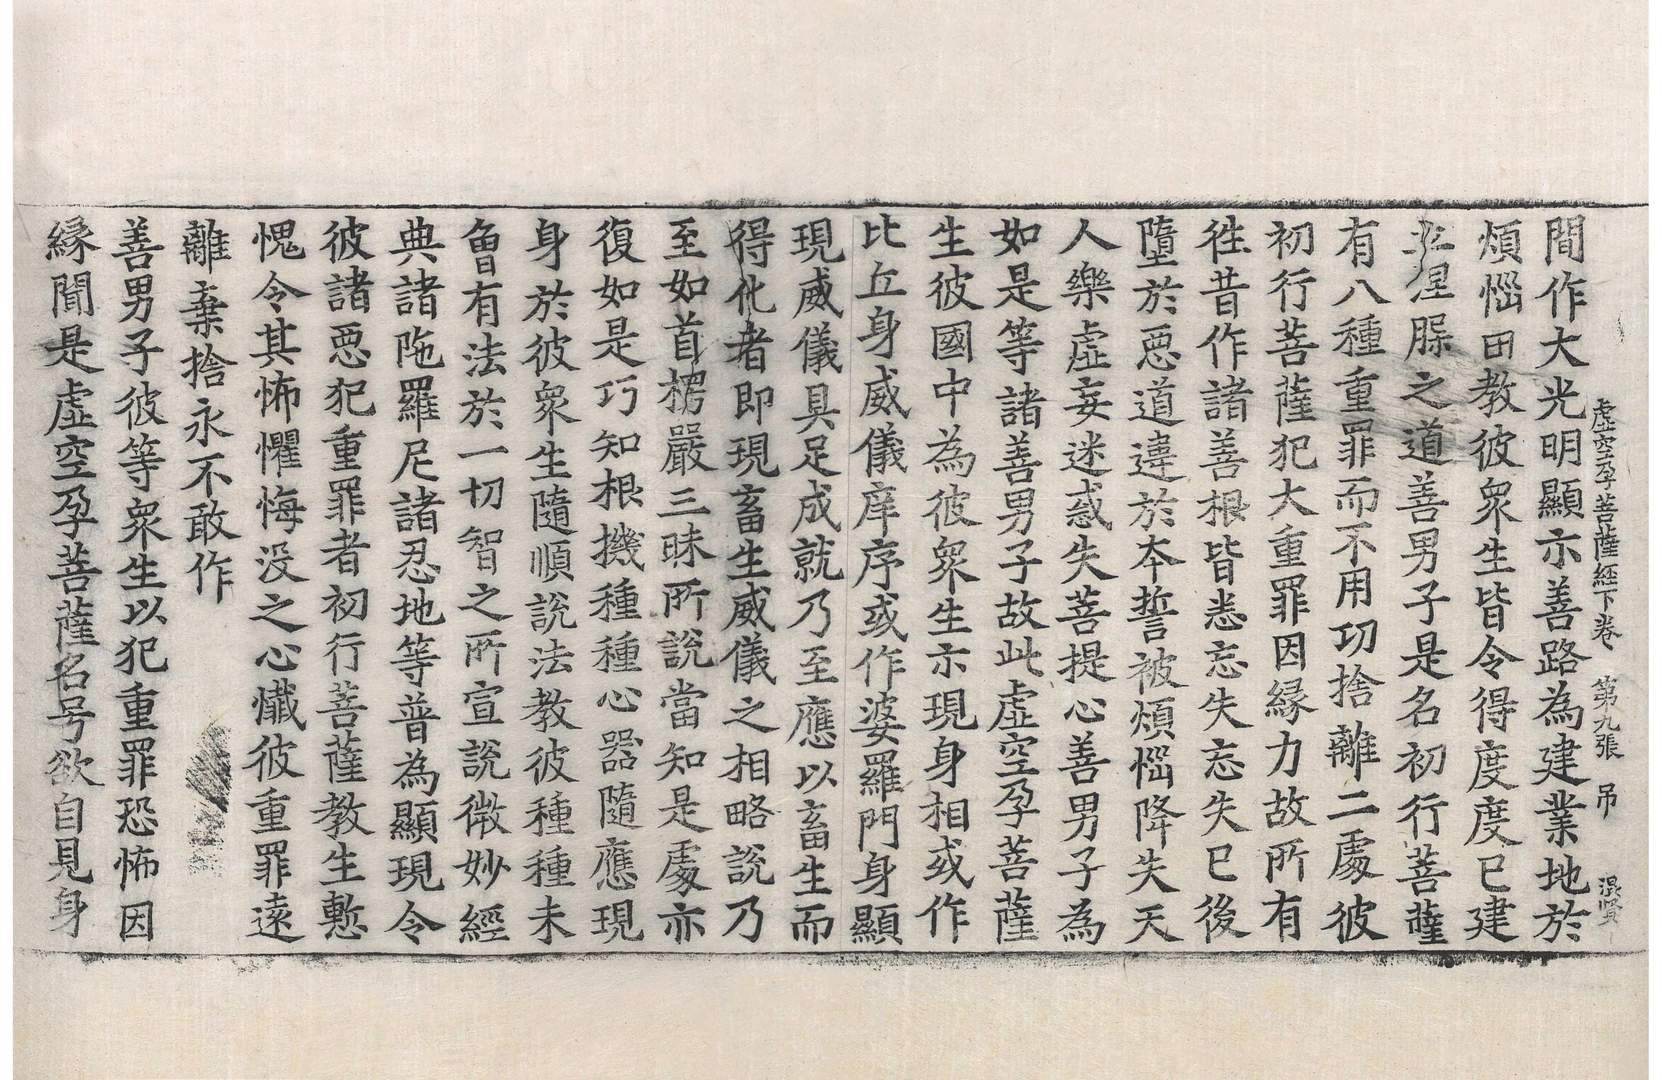 虛空孕菩薩經下卷 第九張 吊 混賢
間作大光明顯示善路為建業地於
煩惱田教彼衆生皆令得度度已建
立涅槃之道善男子是名初行菩薩
有八種重罪而不用功捨離二處彼
初行菩薩犯大重罪因緣力故所有
徃昔作諸善根皆悉忘失忘失已後
墮於惡道違於本誓被煩惱降失天
人樂虛妄迷惑失菩提心善男子為
如是等諸善男子故此虛空孕菩薩
生彼國中為彼衆生示現身相或作
比丘身威儀庠序或作婆羅門身顯
現威儀具足成就乃至應以畜生而
得化者即現畜生威儀之相略說乃
至如首楞嚴三昧所說當知是處亦
復如是巧知根機種種心器隨應現
身於彼衆生隨順說法教彼種種未
曾有法於一切智之所宣說微妙經
典諸陁羅尼諸忍地等普為顯現令
彼諸惡犯重罪者初行菩薩教生慙
愧令其怖懼悔没之心懺彼重罪遠
離棄捨永不敢作
善男子彼等衆生以犯重罪恐怖因
緣聞是虛空孕菩薩名号欲自見身